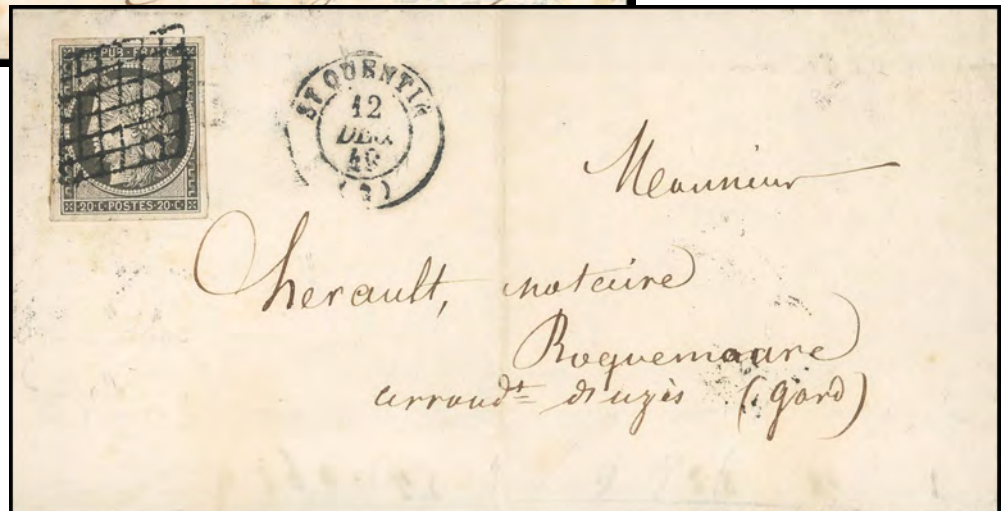 REPUB·FRANC
20·C·POSTES·20·C
ST QUENTIN
12
DEC.
49
(2)
Monsieur
Cherault, notaire
Roquemaure
arrondt d'uzès (Gard)